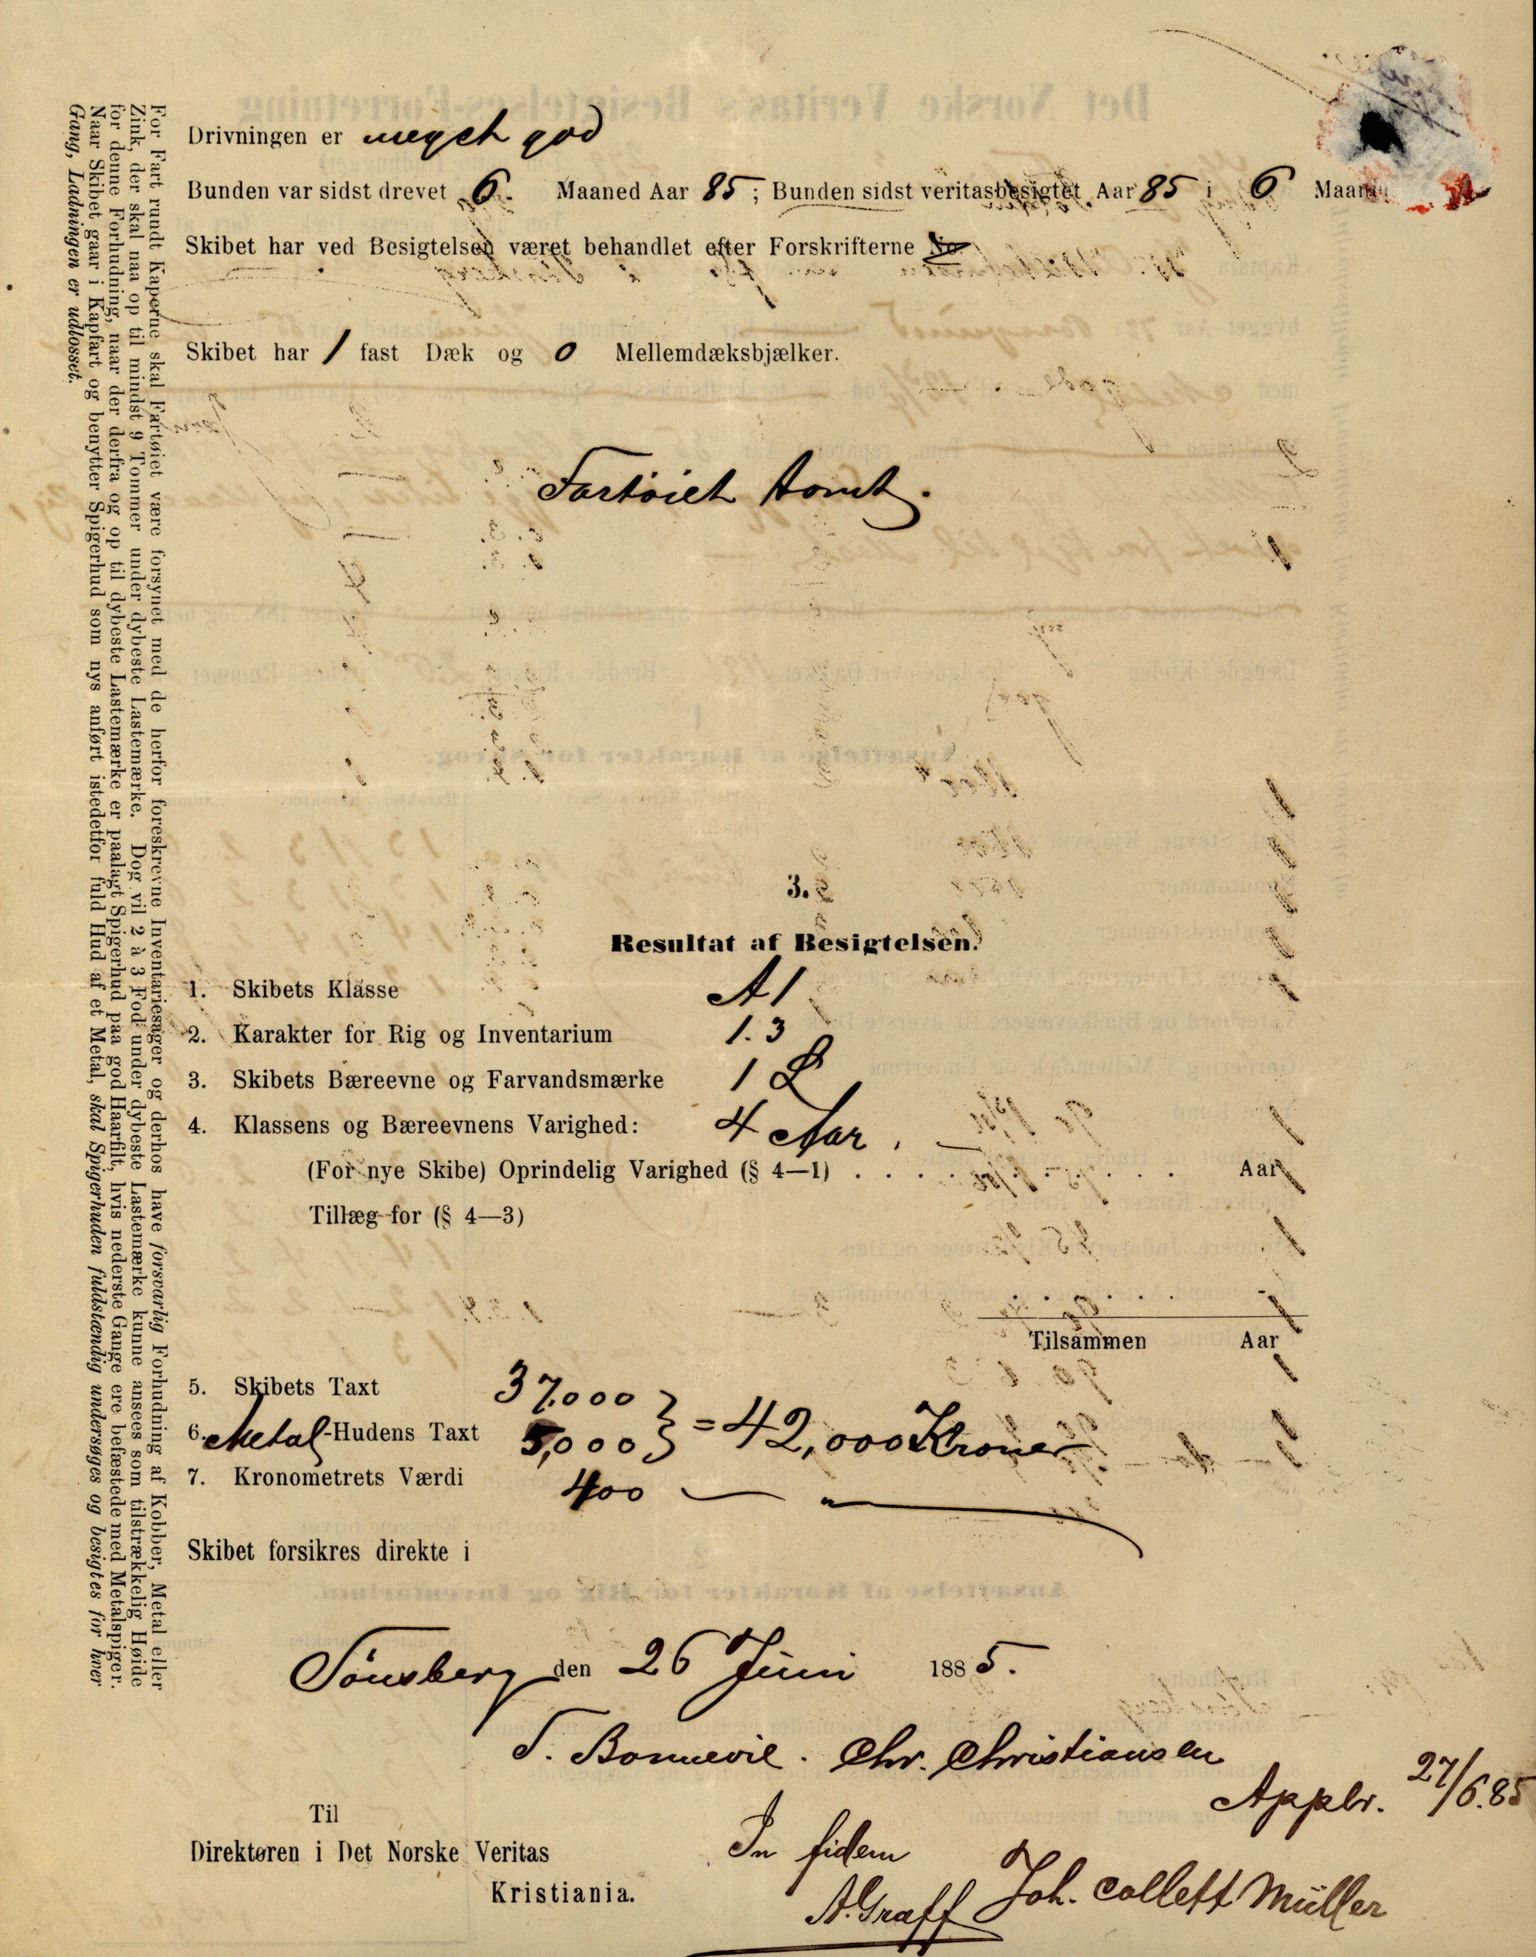 Drivningen er meget god
Bunden var sidst drevet 6. Maaned Aar 85; Bunden sidst veritasbesigtet Aar 85 i 6 Maaned
Skibet har ved Besigtelsen været behandlet efter Forskrifterne No.
Skibet har 1 fast Dæk og 0 Mellemdæksbjælker.
Fartøiet tomt.
3.
Resultat af Besigtelsen.
1. Skibets Klasse A 1
2. Karakter for Rig og Inventarium 1. 3
3. Skibets Bæreevne og Farvandsmærke 1 L
4. Klassens og Bæreevnens Varighed: 4 Aar.
(For nye Skibe) Oprindelig Varighed (§ 4—1) . . . . . . . . . Aar
Tillæg for (§ 4—3)
Tilsammen Aar
5. Skibets Taxt 37.000
6. Metal-Hudens Taxt 5,000 } = 42,000 Kroner
7. Kronometrets Værdi 400 — " —
Skibet forsikres direkte i
Tönsberg den 26 Juni 1885.
T. Bonnevie. Chr. Christiansen
Appbr. 27/6.85
Til
Direktøren i Det Norske Veritas
Kristiania.
In fidem
A. Graff Joh. Collett Müller
For Fart rundt Kaperne skal Fartøiet være forsynet med de herfor foreskrevne Inventariesager og derhos have forsvarlig Forhudning af Kobber, Metal eller
Zink, der skal naa op til mindst 9 Tommer under dybeste Lastemærke. Dog vil 2 à 3 Fod under dybeste Lastemærke kunne ansees som tilstrækkelig Høide
for denne Forhudning, naar der derfra og op til dybeste Lastemærke er paalagt Spigerhud paa god Haarfilt, hvis nederste Gange ere befæstede med Metalspiger.
Naar Skibet gaar i Kapfart og benytter Spigerhud som nys anført istedetfor fuld Hud af et Metal, skal Spigerhuden fuldstændig undersøges og besigtes for hver
Gang, Ladningen er udlosset.